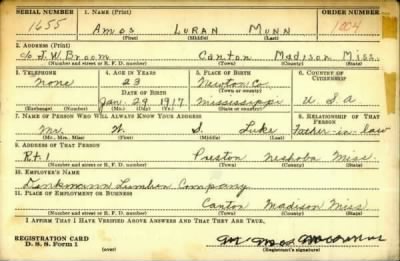 SERIAL NUMBER 1. NAME (Print) ORDER NUMBER
1655 Amos LURAN MUNN 1004
(First) (Middle) (Last)
2. ADDRESS (Print)
c/o J.W. Broom Canton Madison Miss.
(Number and street or R. F. D. number) (Town) (County) (State)
3. TELEPHONE 4. AGE IN YEARS 5. PLACE OF BIRTH 6. COUNTRY OF CITIZENSHIP
None 23 Newton Co.
DATE OF BIRTH (Town or county)
Jan. 29 1917 Mississippi U. S. A
(Exchange) (Number) (Mo.) (Day) (Yr.) (State or country)
7. NAME OF PERSON WHO WILL ALWAYS KNOW YOUR ADDRESS 8. RELATIONSHIP OF THAT PERSON
Mr. W. S. Luke Father-in-law
(Mr., Mrs., Miss) (First) (Middle) (Last)
9. ADDRESS OF THAT PERSON
Rt. 1 Preston Neshoba Miss.
(Number and street or R. F. D. number) (Town) (County) (State)
10. EMPLOYER'S NAME
Lumber Company
11. PLACE OF EMPLOYMENT OR BUSINESS
Canton Madison Miss
(Number and street or R. F. D. number) (Town) (County) (State)
I AFFIRM THAT I HAVE VERIFIED ABOVE ANSWERS AND THAT THEY ARE TRUE.
REGISTRATION CARD
D. S. S. Form 1 (over) (Registrant's signature)